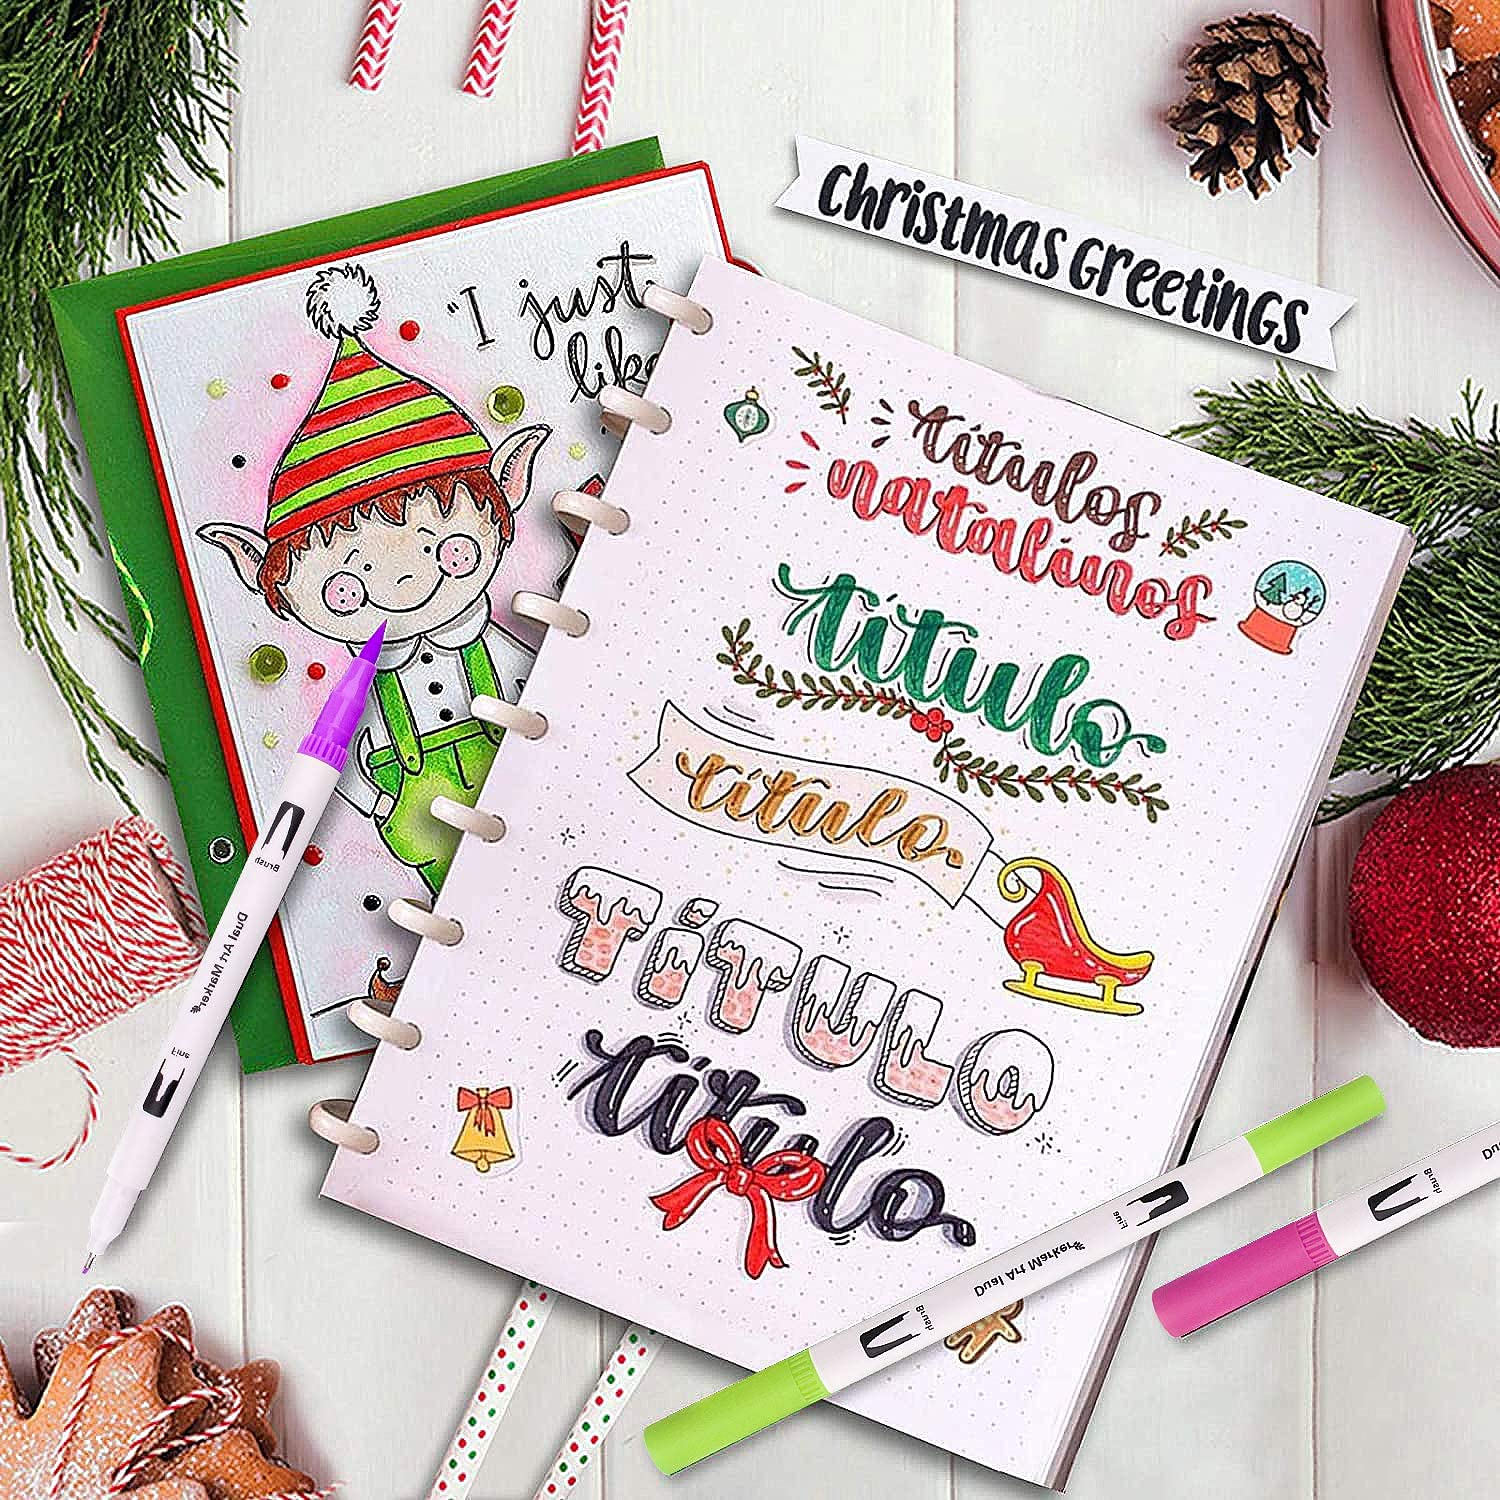 Christmas Greetings
"I just
like
títulos
natalinos
título
título
TíTULO
título
Brush
Dual Art Marker
Fine
Fine
Dual Art Marker
Brush
Brush
Du